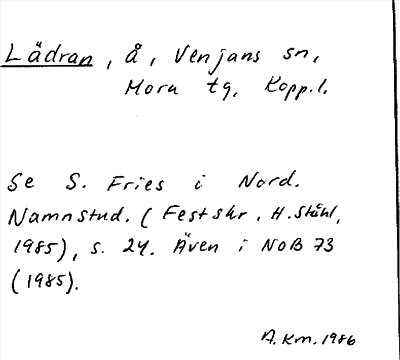 Lädran, å, Venjans sn,
Mora tg, Kopp.l.
Se S. Fries i Nord.
Namnstud. (Festskr. H. Ståhl,
1985), s. 24. Även i NoB 73
(1985).
A.Km. 1986